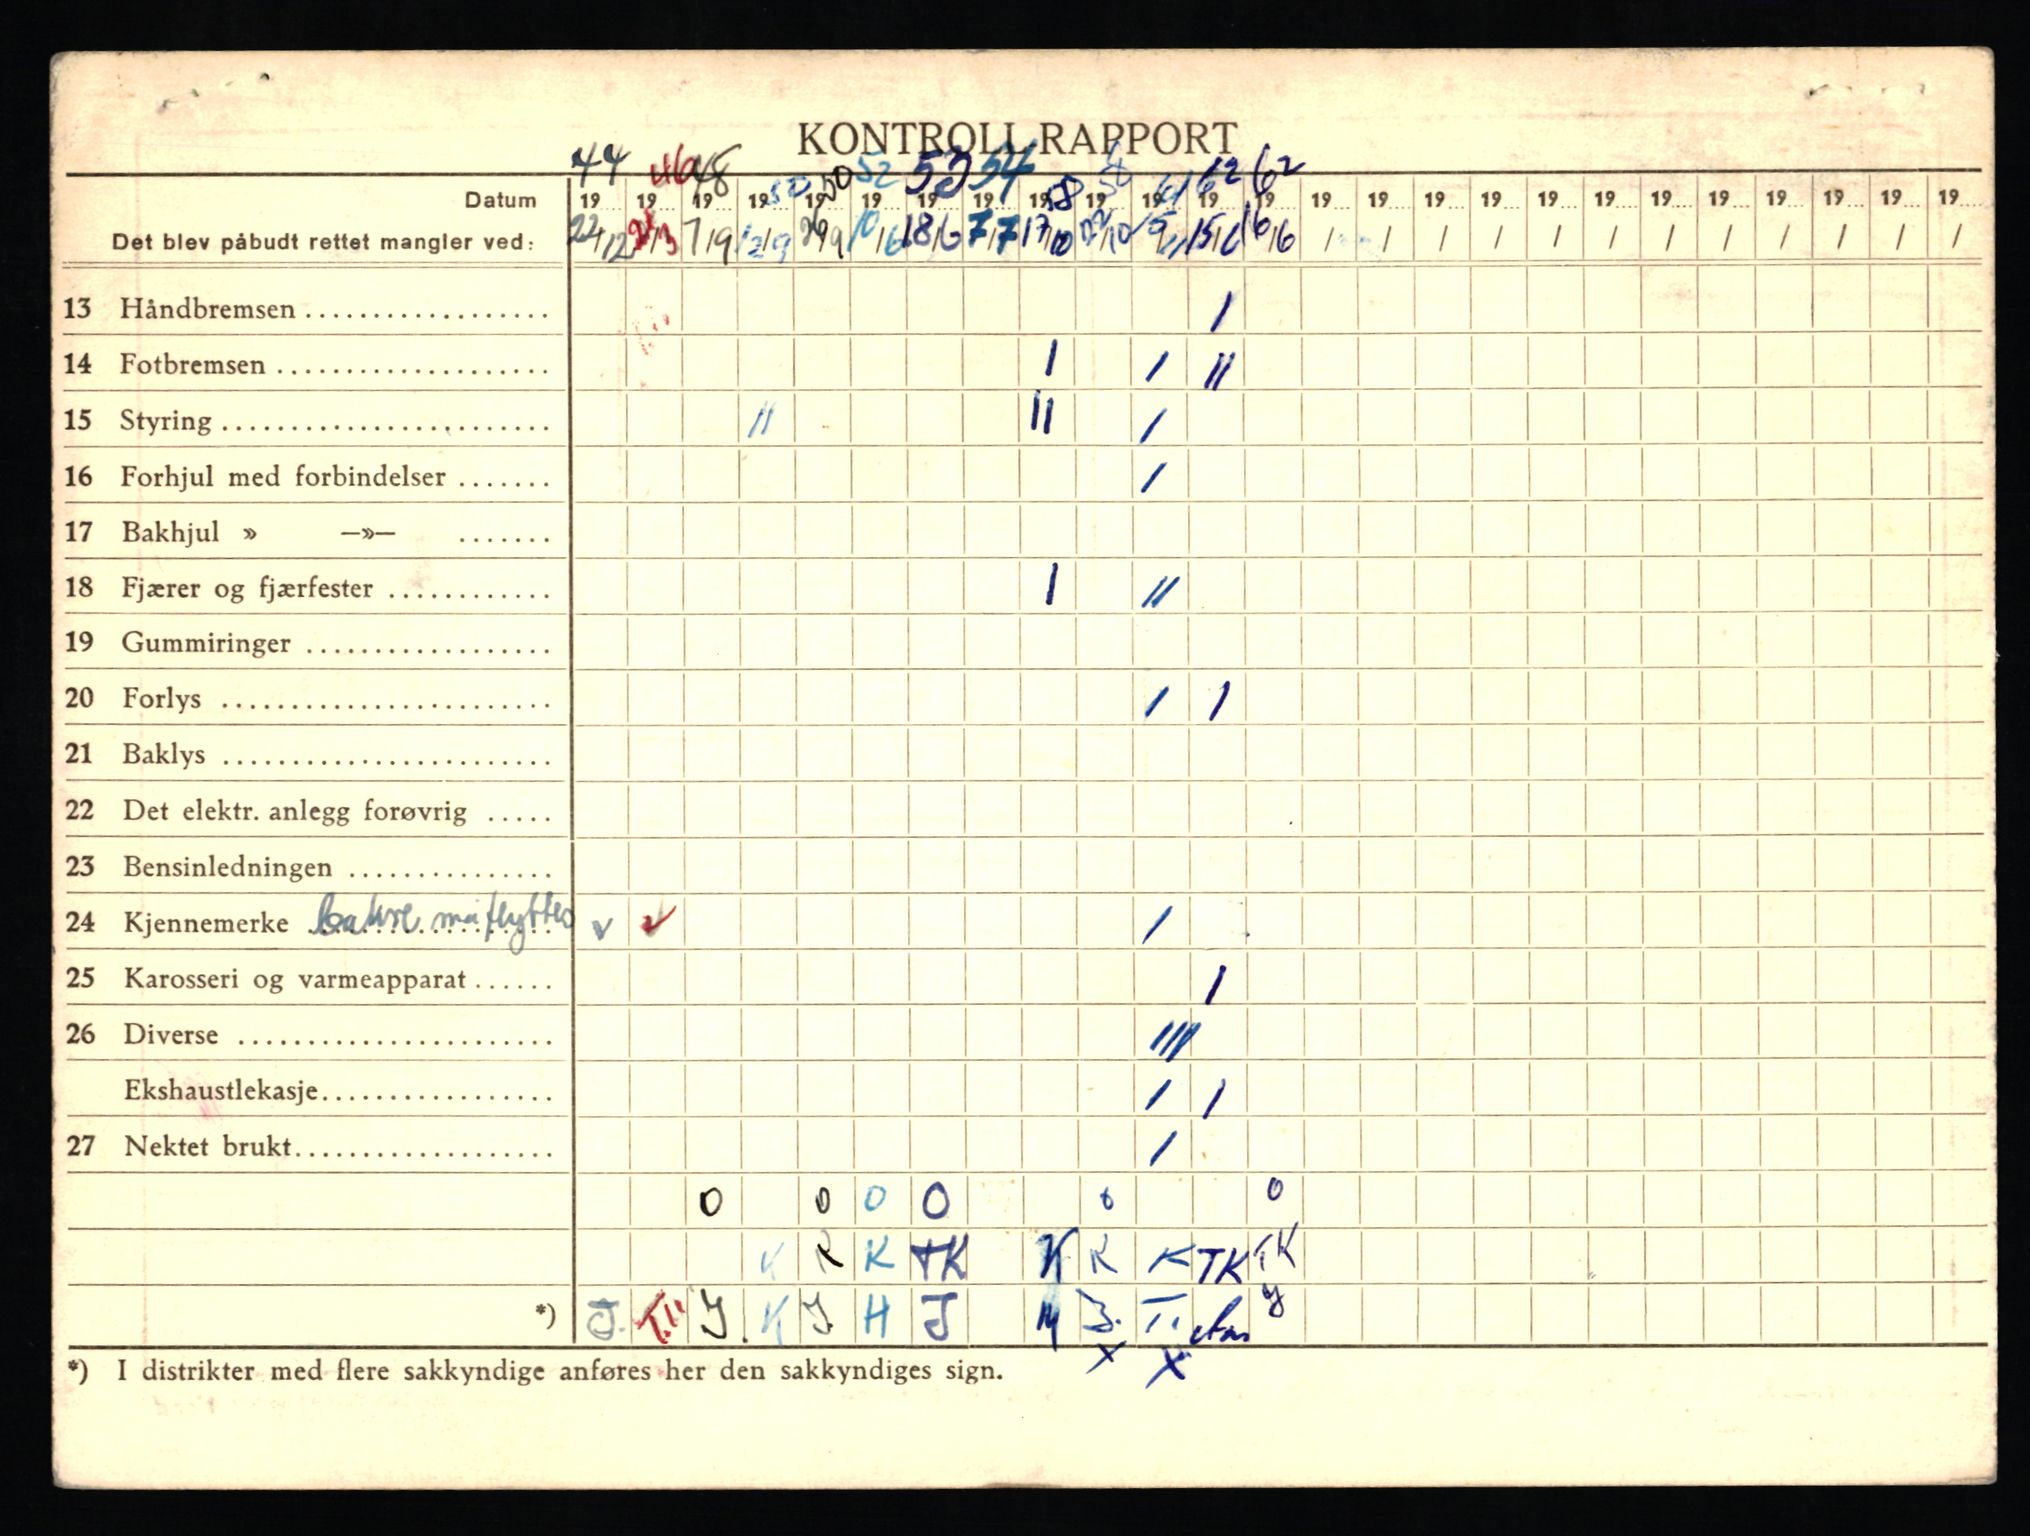 KONTROLLRAPPORT
44 46 48 50 50 52 53 54 58 58 61 62 62
Datum 19 19 19 19 19 19 19 19 19 19 19 19 19 19 19 19 19 19 19 19 19 19 19 19 19
Det blev påbudt rettet mangler ved: 22/12 21/3 7/9 12/9 26/9 10/6 18/6 7/7 17/10 /10 15/6 16/6 / / / / / / / / / / / /
13 Håndbremsen I
14 Fotbremsen I I II
15 Styring II II I
16 Forhjul med forbindelser I
17 Bakhjul » —»—
18 Fjærer og fjærfester I II
19 Gummiringer
20 Forlys I I
21 Baklys
22 Det elektr. anlegg forøvrig
23 Bensinledningen
24 Kjennemerke bakre må flyttes v v I
25 Karosseri og varmeapparat I
26 Diverse IIII
Ekshaustlekasje I I
27 Nektet brukt I
0 0 0 0 0 0
K K K TK K K K TK TK
*) J. T.i. J. K J. H J M J. T.
X X
*) I distrikter med flere sakkyndige anføres her den sakkyndiges sign.